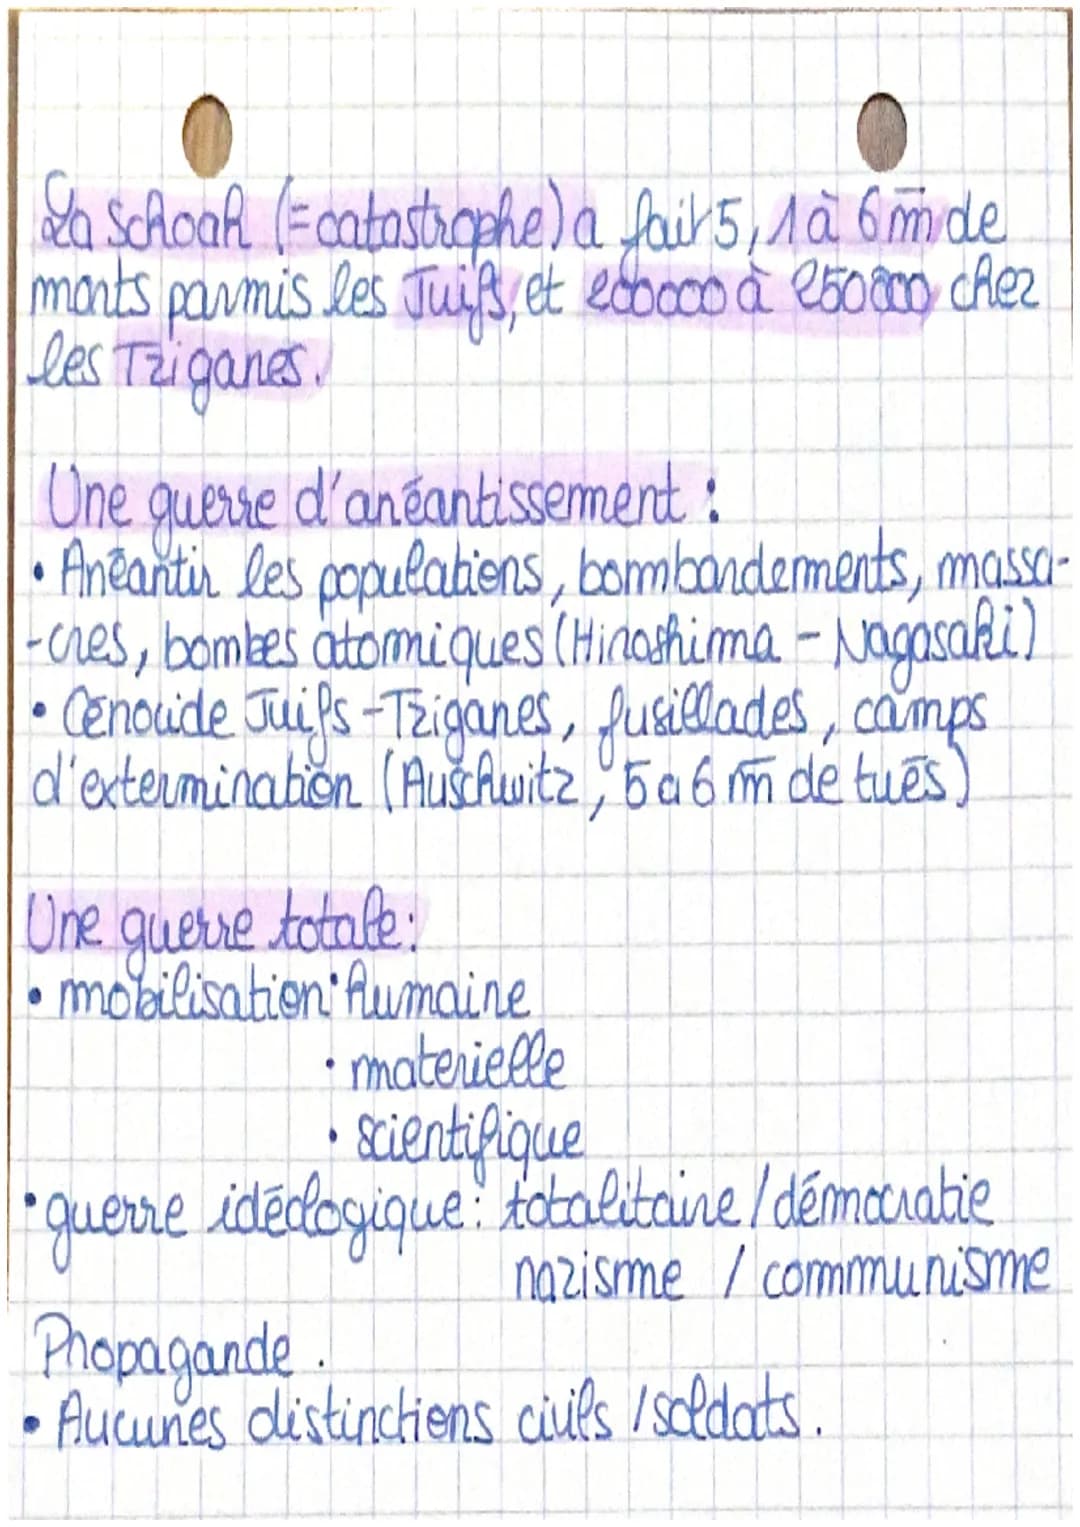 La Schoah (=catastrophe) a fait 5,1 à 6 m̅ de
morts parmis les Juifs, et 200000 à 250000 chez
les Tziganes.
Une guerre d'anéantissement :
• Anéantir les populations, bombardements, massa-
-cres, bombes atomiques (Hiroshima - Nagasaki)
• Génocide Juifs - Tziganes, fusillades, camps
d'extermination (Auschwitz, 5 a 6 m̅ de tués)
Une guerre totale :
• mobilisation • humaine
• materielle
• scientifique
• guerre idéologique : totalitaire / démocratie
nazisme / communisme
Propagande.
• Aucunes distinctions civils / soldats.